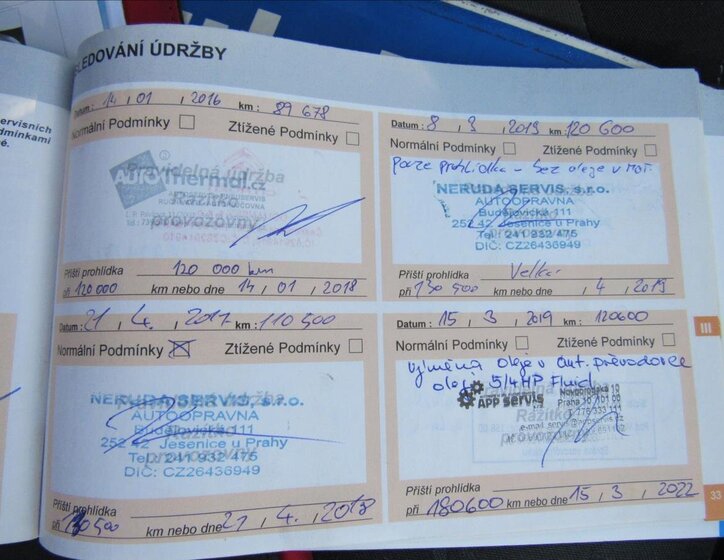 SLEDOVÁNÍ ÚDRŽBY
servisních
podmínkami
né.
Datum: 14, 01, 2016 km: 89 678
Normální Podmínky Ztížené Podmínky
Pravidelná údržba
AutoThermal.cz
Razítko
provozovny
Příští prohlídka 120 000 km
při 120 000 km nebo dne 14, 01, 2018
Datum: 8, 3, 2019 km: 120 600
Normální Podmínky Ztížené Podmínky
pouze prohlídka - bez oleje v mot.
NERUDA SERVIS, s.r.o.
AUTOOPRAVNA
Budějovická 111
252 42 Jesenice u Prahy
Tel.: 241 932 475
DIČ: CZ26436949
Příští prohlídka Velká
při 130 500 km nebo dne , 4, 2019
Datum: 21, 4, 2017 km: 110 500
Normální Podmínky Ztížené Podmínky
NERUDA SERVIS, s.r.o.
AUTOOPRAVNA
Budějovická 111
252 42 Jesenice u Prahy
Tel.: 241 932 475
DIČ: CZ26436949
Příští prohlídka
při 130 500 km nebo dne 21, 4, 2018
Datum: 15, 3, 2019 km: 120600
Normální Podmínky Ztížené Podmínky
výměna oleje v aut. převodovce
olej 5/4HP Fluid
APP servis
Novoborská 10
Praha 10, 101 00
Razítko
provozovny
Příští prohlídka
při 180600 km nebo dne 15, 3, 2022
III
33